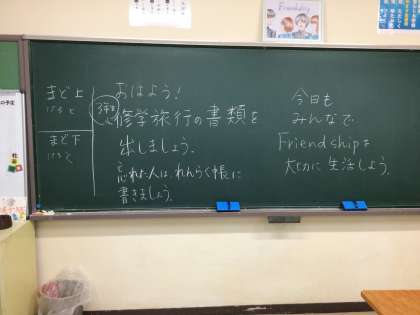 Friendship
まど上
まど下
おはよう！
3年生
修学旅行の書類を
出しましょう。
忘れた人は、れんらく帳に
書きましょう。
今日も
みんなで
Friendshipを
大切に生活しよう。